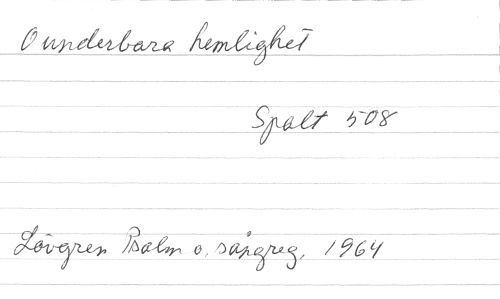 O underbara hemlighet
Spalt 508
Lövgren Psalm o. sångreg. 1964